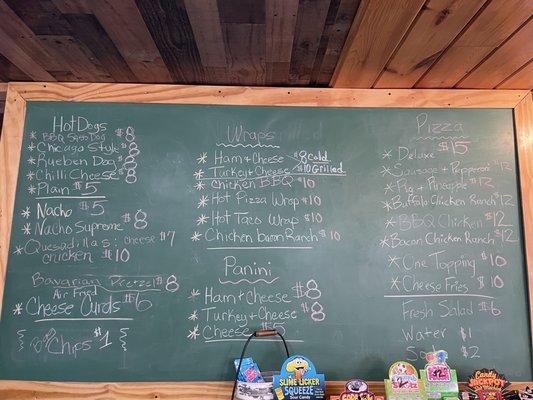 Hot Dogs
BBQ Slaw Dog $8
* Chicago Style $8
* Rueben Dog $8
* Chilli Cheese $8
* Plain $5
* Nacho $5
* Nacho Supreme $8
* Quesadillas: cheese $7
chicken $10
Bavarian Pretzel $8
Air Fried
* Cheese Curds $6
Chips $1
Wraps
* Ham + Cheese $8 cold
* Turkey + Cheese $10 Grilled
* chicken BBQ $10
* Hot Pizza Wrap $10
* Hot Taco Wrap $10
* Chicken bacon Ranch $10
Panini
* Ham + Cheese $8
* Turkey + Cheese $8
* Cheese $5
Pizza
$15
* Deluxe
* Sausage + Pepperoni $12
* Pig + Pineapple $12
* Buffalo Chicken Ranch $12
* BBQ Chicken $12
* Bacon Chicken Ranch $12
* One Topping $10
* Cheese Fries $10
Fresh Salad $6
Water $1
Soda $2
SLIME LICKER
SQUEEZE
Sour Candy
CANDY
JACKPOT